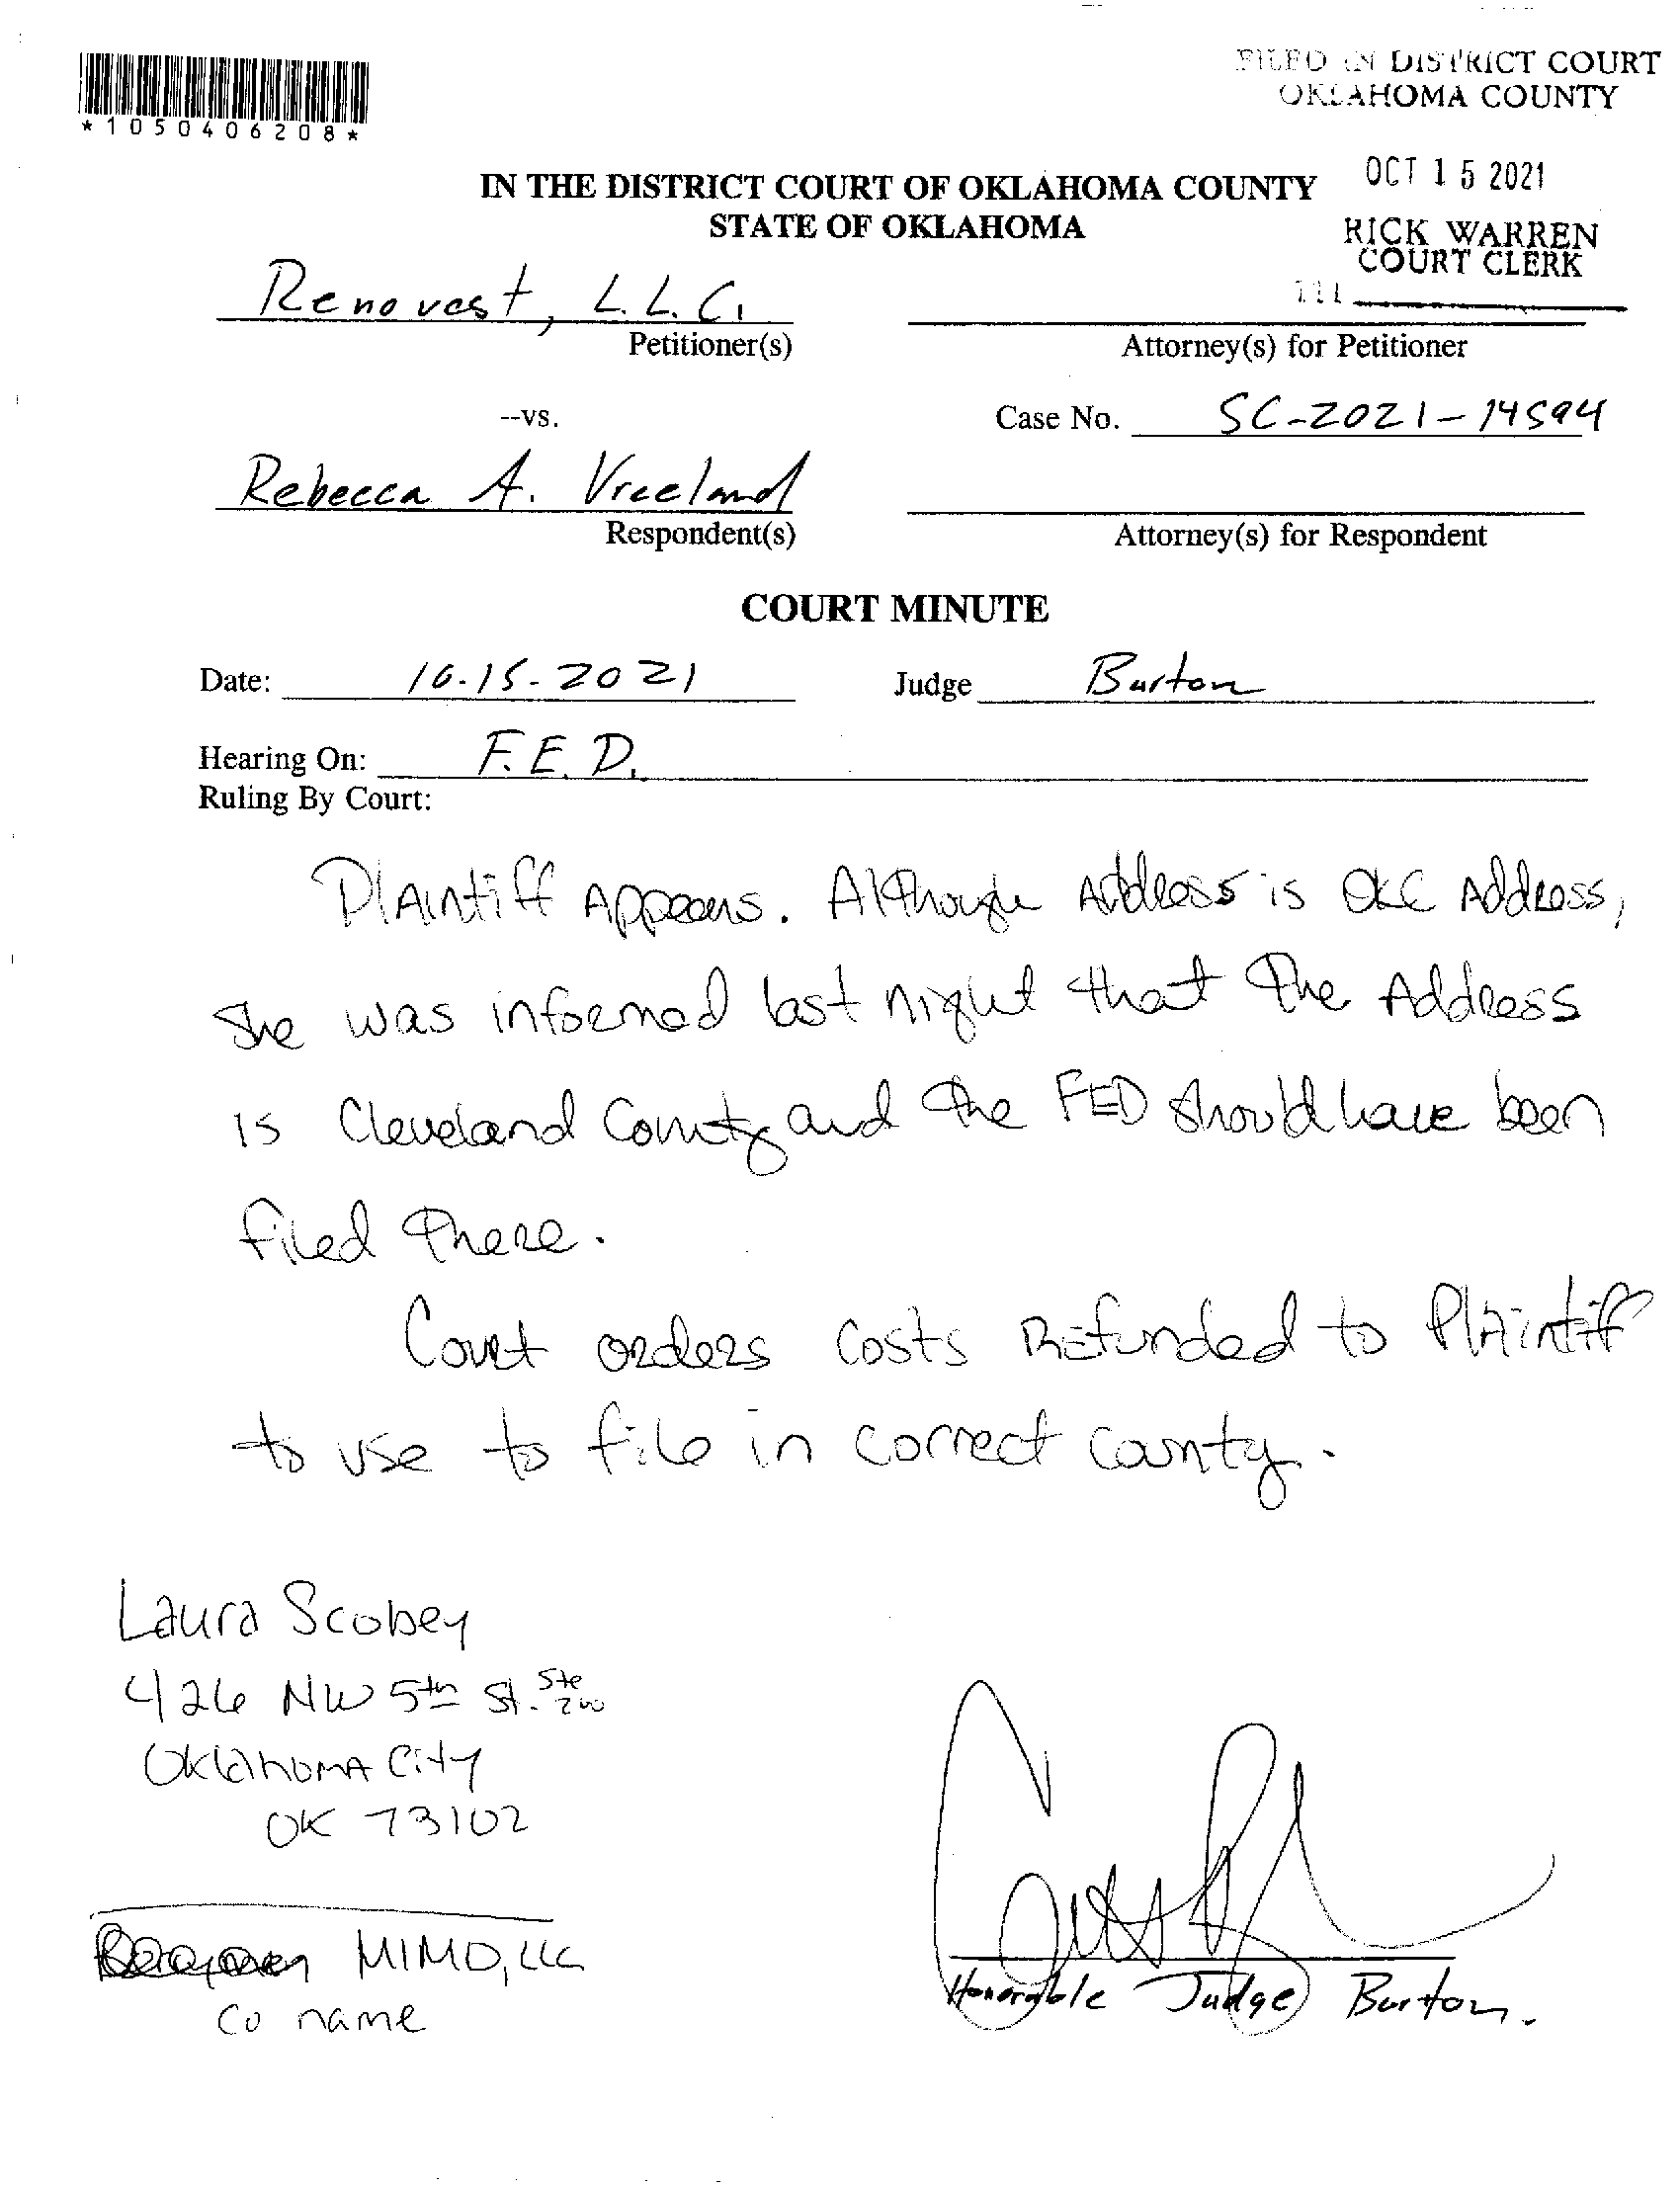 FILED IN DISTRICT COURT
OKLAHOMA COUNTY
*1050406208*
OCT 15 2021
IN THE DISTRICT COURT OF OKLAHOMA COUNTY
STATE OF OKLAHOMA
RICK WARREN
COURT CLERK
111
Renovest, L.L.C.
Petitioner(s)
Attorney(s) for Petitioner
--vs.
Case No. SC-2021-14594
Rebecca A. Vreeland
Respondent(s)
Attorney(s) for Respondent
COURT MINUTE
Date: 10.15-2021
Judge Burton
Hearing On: F.E.D.
Ruling By Court:
Plaintiff Appears. Although Address is OKC Address,
she was informed last night that the Address
is Cleveland County and the FED should have been
filed there.
Court orders costs Refunded to Plaintiff
to use to file in correct county.
Laura Scobey
426 NW 5th St. Ste 200
Oklahoma City
OK 73102
MIMO, LLC
Co name
Honorable Judge Burton.